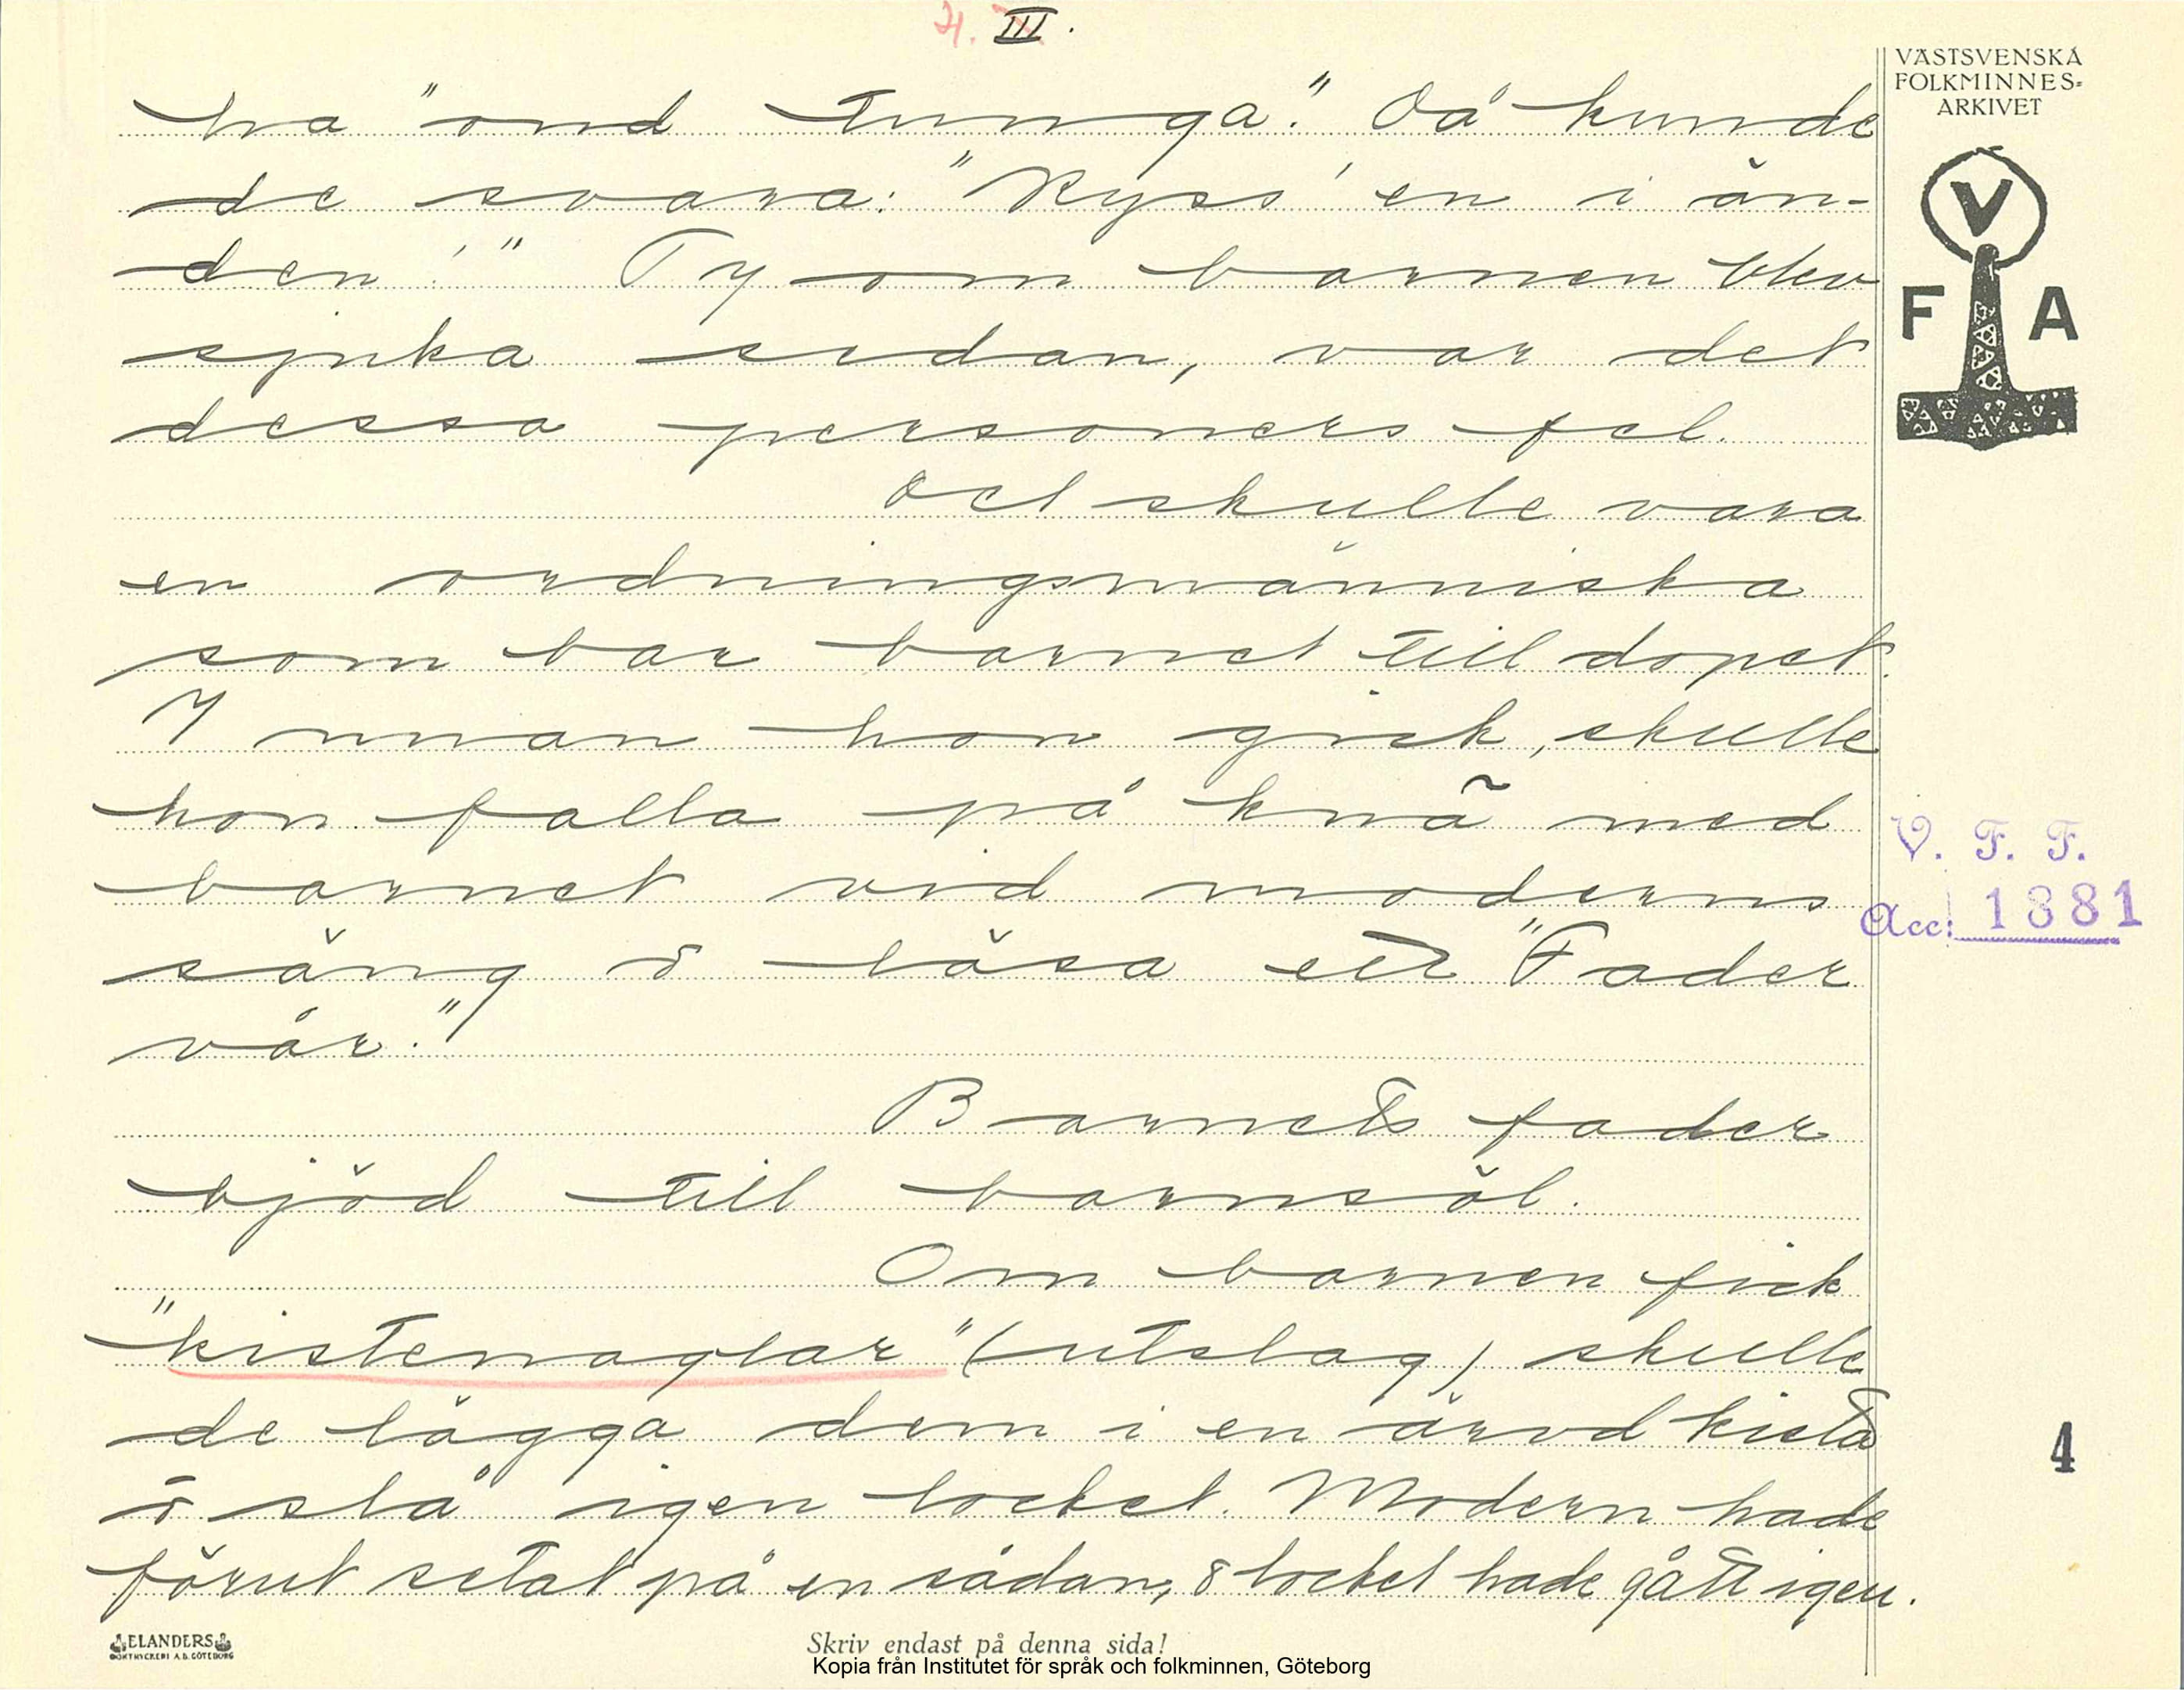 H. III.
VÄSTSVENSKA
FOLKMINNES-
ARKIVET
V
F A
ha "ond tunga". Då kunde
de svara: "Kyss' en i än-
den!" Ty om barnen blev
sjuka sedan, var det
dessa personers fel.
Det skulle vara
en ordningsmänniska
som bar barnet till dopet.
Innan hon gick, skulle
hon falla på knä med
barnet vid moderns
säng o läsa ett "Fader
vår."
Barnets fader
bjöd till barnsöl.
Om barnen fick
"kistenaglar" (utslag) skulle
de lägga dem i en ärvd kista
o slå igen locket. Modern hade
förut setat på en sådan, o locket hade gått igen.
V. F. F.
Acc: 1381
4
ELANDERS
BOKTRYCKERI A.B. GÖTEBORG
Skriv endast på denna sida!
Kopia från Institutet för språk och folkminnen, Göteborg